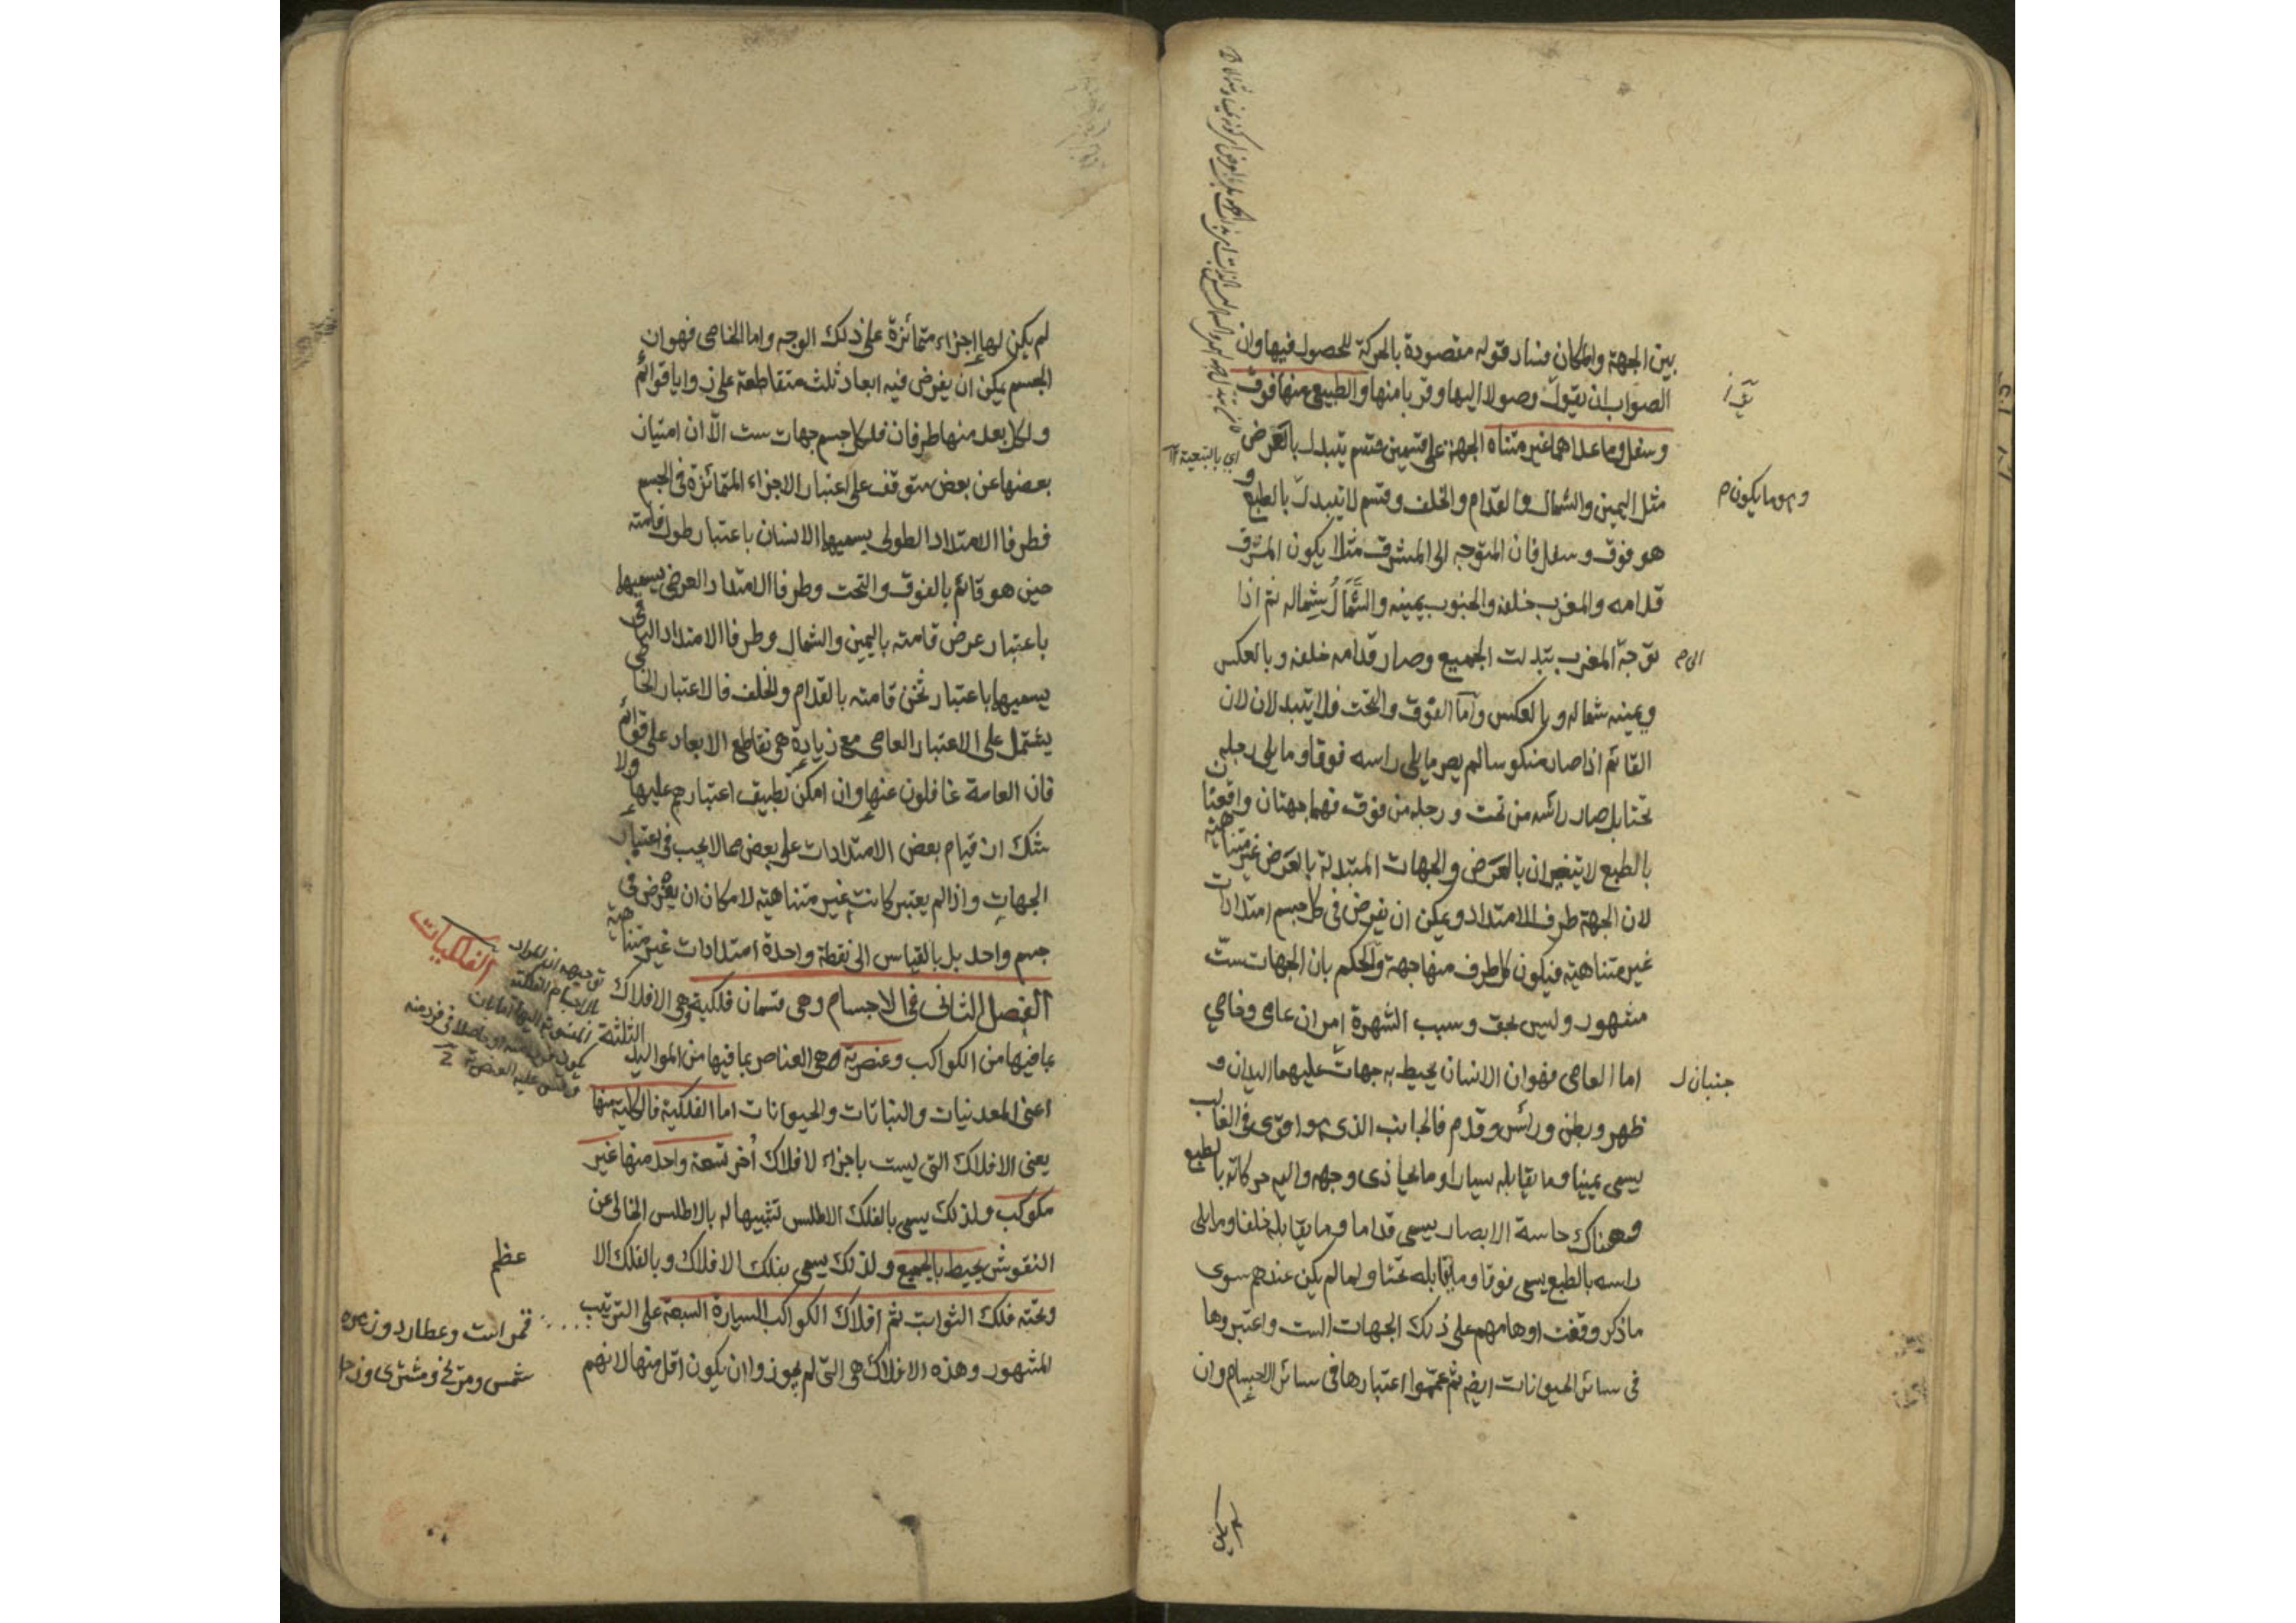 بين الجهة والمكان فساد قوله مقصودة بالحركة للحصول فيها وان
الصواب ان يقول وصولا اليها وقربا منها والطبيعي منها فوق
وسفل وما عداهما غير متناه الجهة على قسمين قسم يتبدل بالعرض
اي بالتبعية ١٢
مثل اليمين والشمال والقدام والخلف وقسم لا يتبدل بالطبع و
وهو ما يكون م
هو فوق وسفل فان المتوجه الى المشرق مثلا يكون المشرق
قدامه والمغرب خلفه والجنوب يمينه والشَّمال شماله ثم اذا
توجه المغرب يتبدلت الجميع وصار قدامه خلفه وبالعكس
الى م
ويمينه شماله وبالعكس واما الفوق والتحت فلا يتبدلان لان
القائم اذا صار منكوسا لم يصر ما يلي راسه فوقا وما يلي رجله
تحتا بل صار رأسه من تحت ورجله من فوق فهما جهتان واقعتان
بالطبع لا يتغيران بالعَرَض والجهات المتبدلة بالعَرَض غير متناهية
لان الجهة طرف الامتداد ويمكن ان يفرض في كل جسم امتدادات
غير متناهية فيكون كل طرف منها جهة والحكم بان الجهات ستّ
مشهور وليس بحق وسبب الشهرة امران عامي وخاصي
اما العامي فهو ان الانسان يحيط به جهات عليهما اليدان و
جنبان ل
ظهر وبطن ورأس وقدم فالجانب الذي هو اقوى في الغالب
يسمى يمينا وما يقابله يسارا وما يحاذى وجهه واليه حركاته بالطبع
وهناك حاسة الابصار يسمى قداما وما يقابله خلفا وما يلى
راسه بالطبع يسمى فوقا وما يقابله تحتا ولما لم يكن عندهم سوى
ما ذكر وقفت اوهامهم على ذلك الجهات الست واعتبروها
في سائر الحيوانات ايضا ثم عمموا اعتبارها في سائر الاجسام وان
لم يكن لها اجزاء متمائزة على ذلك الوجه واما الخاصى فهو ان
الجسم يمكن ان يفرض فيه ابعاد ثلث متقاطعة على زوايا قوائم
ولكل بعد منها طرفان فلكل جسم جهات ست الّا ان امتياز
بعضها عن بعض يتوقف على اعتبار الاجزاء المتمائزة في الجسم
فطرفا الامتداد الطولى يسميها الانسان باعتبار طول قامته
حين هو قائم بالفوق والتحت وطرفا الامتداد العرضى يسميها
باعتبار عرض قامته باليمين والشمال وطرفا الامتداد الباقى
يسميها باعتبار ثخن قامته بالقدام والخلف فالاعتبار الخاصى
يشتمل على الاعتبار العامى مع زيادة هي تقاطع الابعاد على قوائم
فان العامة غافلون عنها وان امكن تطبيق اعتبارهم عليها ولا
شك ان قيام بعض الامتدادات على بعض مما لا يجب في اعتبار
الجهات واذا لم يعتبر كانت غير متناهية لامكان ان يفرض في
جسم واحد بل بالقياس الى نقطة واحدة امتدادات غير متناهية
الفلكيات
الفصل الثانى في الاجسام وهي قسمان فلكية وهي الافلاك
بما فيها من الكواكب وعنصرية وهي العناصر بما فيها من المواليد الثلثة
اعنى المعدنيات والنباتات والحيوانات اما الفلكية فالكلية منها
يعنى الافلاك التى ليست باجزاء لافلاك أخر تسعة واحد منها غير
مكوكب ولذلك يسمى بالفلك الاطلس تشبيها له بالاطلس الخالى عن
النقوش يحيط بالجميع ولذلك يسمى بفلك الافلاك وبالفلك الا
عظم
وتحته فلك الثوابت ثم افلاك الكواكب السيارة السبعة على الترتيب
قمر است وعطارد و زهره
المشهور وهذه الافلاك هي التى لم يجوزوا ان يكون اقل منها لانهم
شمس ومريخ ومشترى وزحل